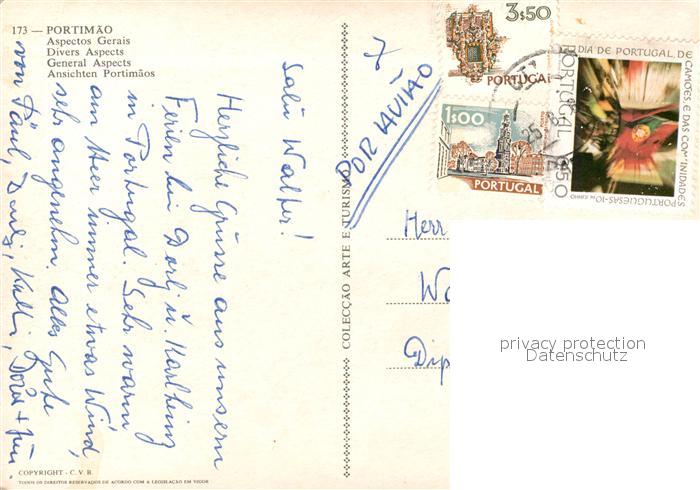 173 — PORTIMÃO
Aspectos Gerais
Divers Aspects
General Aspects
Ansichten Portimãos
Salü Walter!
Herzliche Grüsse aus unsern
Ferien bei Dorlj u. Karlheinz
in Portugal. Sehr warm
am Meer immer etwas Wind,
sehr angenehm. Alles Gute
von Paul,
COPYRIGHT - C. V. B.
TODOS OS DIREITOS RESERVADOS DE ACORDO COM A LEGISLAÇÃO EM VIGOR
COLECÇÃO ARTE E TURISMO
POR AVIÃO
3$50
PORTUGAL
1$00
PORTUGAL
DIA DE PORTUGAL, DE
CAMÕES, E DAS COMUNIDADES
PORTUGUESAS-10
PORTUGAL
Herr
Dip
privacy protection
Datenschutz